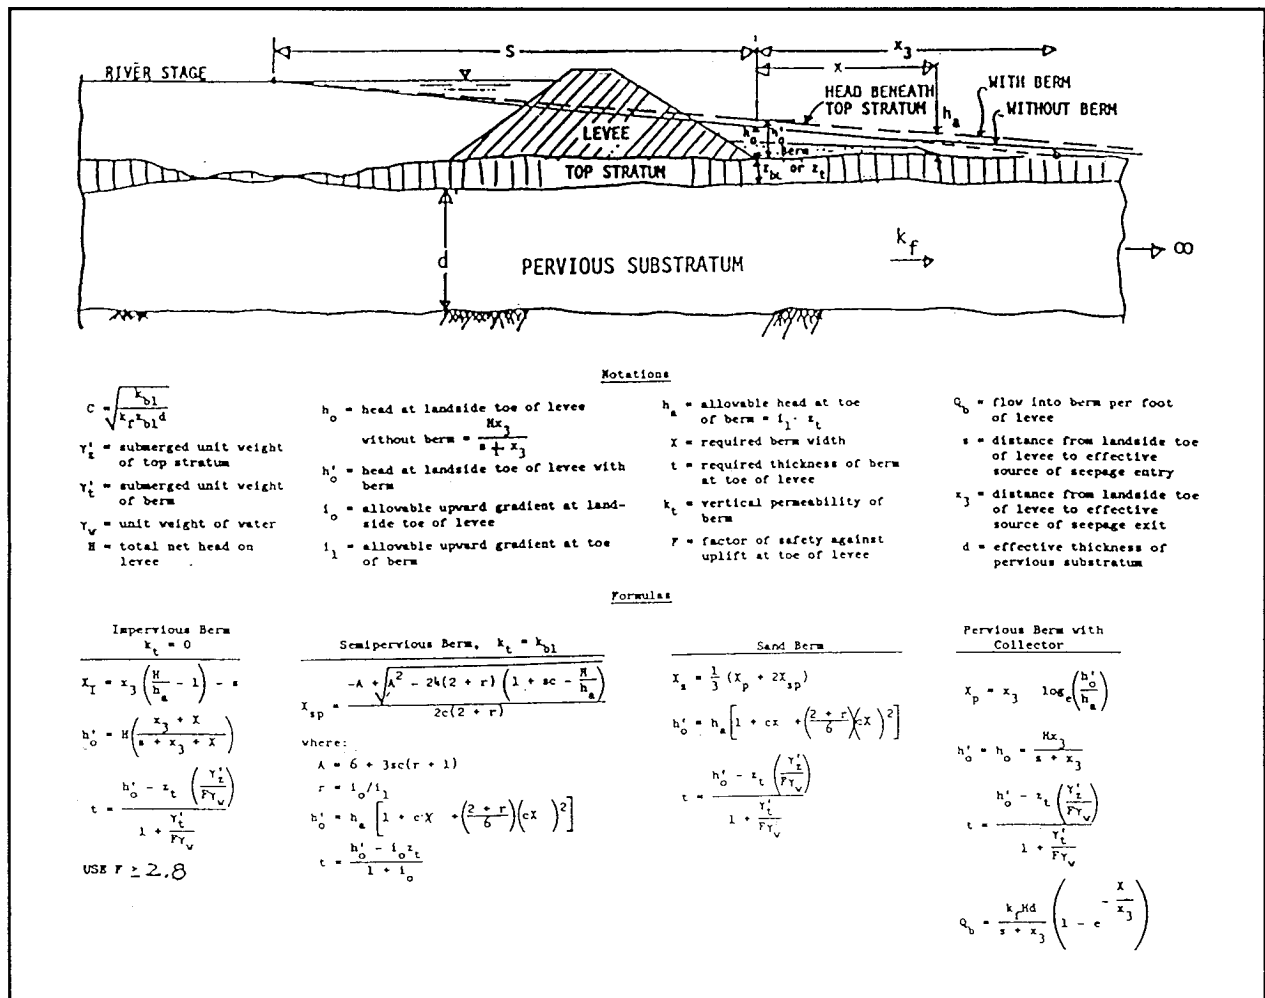 S
x₃
RIVER STAGE
X
HEAD BENEATH
TOP STRATUM
hₐ
WITH BERM
WITHOUT BERM
LEVEE
hₒ
h'ₒ
Berm
TOP STRATUM
z_bL or z_t
d
PERVIOUS SUBSTRATUM
k_f
∞
Notations
C = √(k_bl / (k_f z_bl d))
γ'_z = submerged unit weight
of top stratum
γ'_t = submerged unit weight
of berm
γ_w = unit weight of water
H = total net head on
levee
hₒ = head at landside toe of levee
without berm = Hx₃ / (s + x₃)
h'ₒ = head at landside toe of levee with
berm
iₒ = allowable upward gradient at land-
side toe of levee
i₁ = allowable upward gradient at toe
of berm
hₐ = allowable head at toe
of berm = i₁ · z_t
X = required berm width
t = required thickness of berm
at toe of levee
k_t = vertical permeability of
berm
F = factor of safety against
uplift at toe of levee
Q_b = flow into berm per foot
of levee
s = distance from landside toe
of levee to effective
source of seepage entry
x₃ = distance from landside toe
of levee to effective
source of seepage exit
d = effective thickness of
pervious substratum
Formulas
Impervious Berm
k_t = 0
X_I = x₃ (H/hₐ - 1) - s
h'ₒ = H ((x₃ + X) / (s + x₃ + X))
t = (h'ₒ - z_t (γ'_z / Fγ_w)) / (1 + γ'_t / Fγ_w)
USE F ≥ 2.8
Semipervious Berm, k_t = k_bl
X_sp = (-A + √(A² - 24(2 + r) (1 + sc - H/hₐ))) / (2c(2 + r))
where:
A = 6 + 3sc(r + 1)
r = iₒ/i₁
h'ₒ = hₐ [1 + cX + ((2 + r)/6)(cX)²]
t = (h'ₒ - iₒz_t) / (1 + iₒ)
Sand Berm
X_s = 1/3 (X_p + 2X_sp)
h'ₒ = hₐ [1 + cx + ((2 + r)/6)(cX)²]
t = (h'ₒ - z_t (γ'_z / Fγ_w)) / (1 + γ'_t / Fγ_w)
Pervious Berm with
Collector
X_p = x₃ logₑ(h'ₒ/hₐ)
h'ₒ = hₒ = Hx₃ / (s + x₃)
t = (h'ₒ - z_t (γ'_z / Fγ_w)) / (1 + γ'_t / Fγ_w)
Q_b = (k_f Hd / (s + x₃)) (1 - e^(-X/x₃))